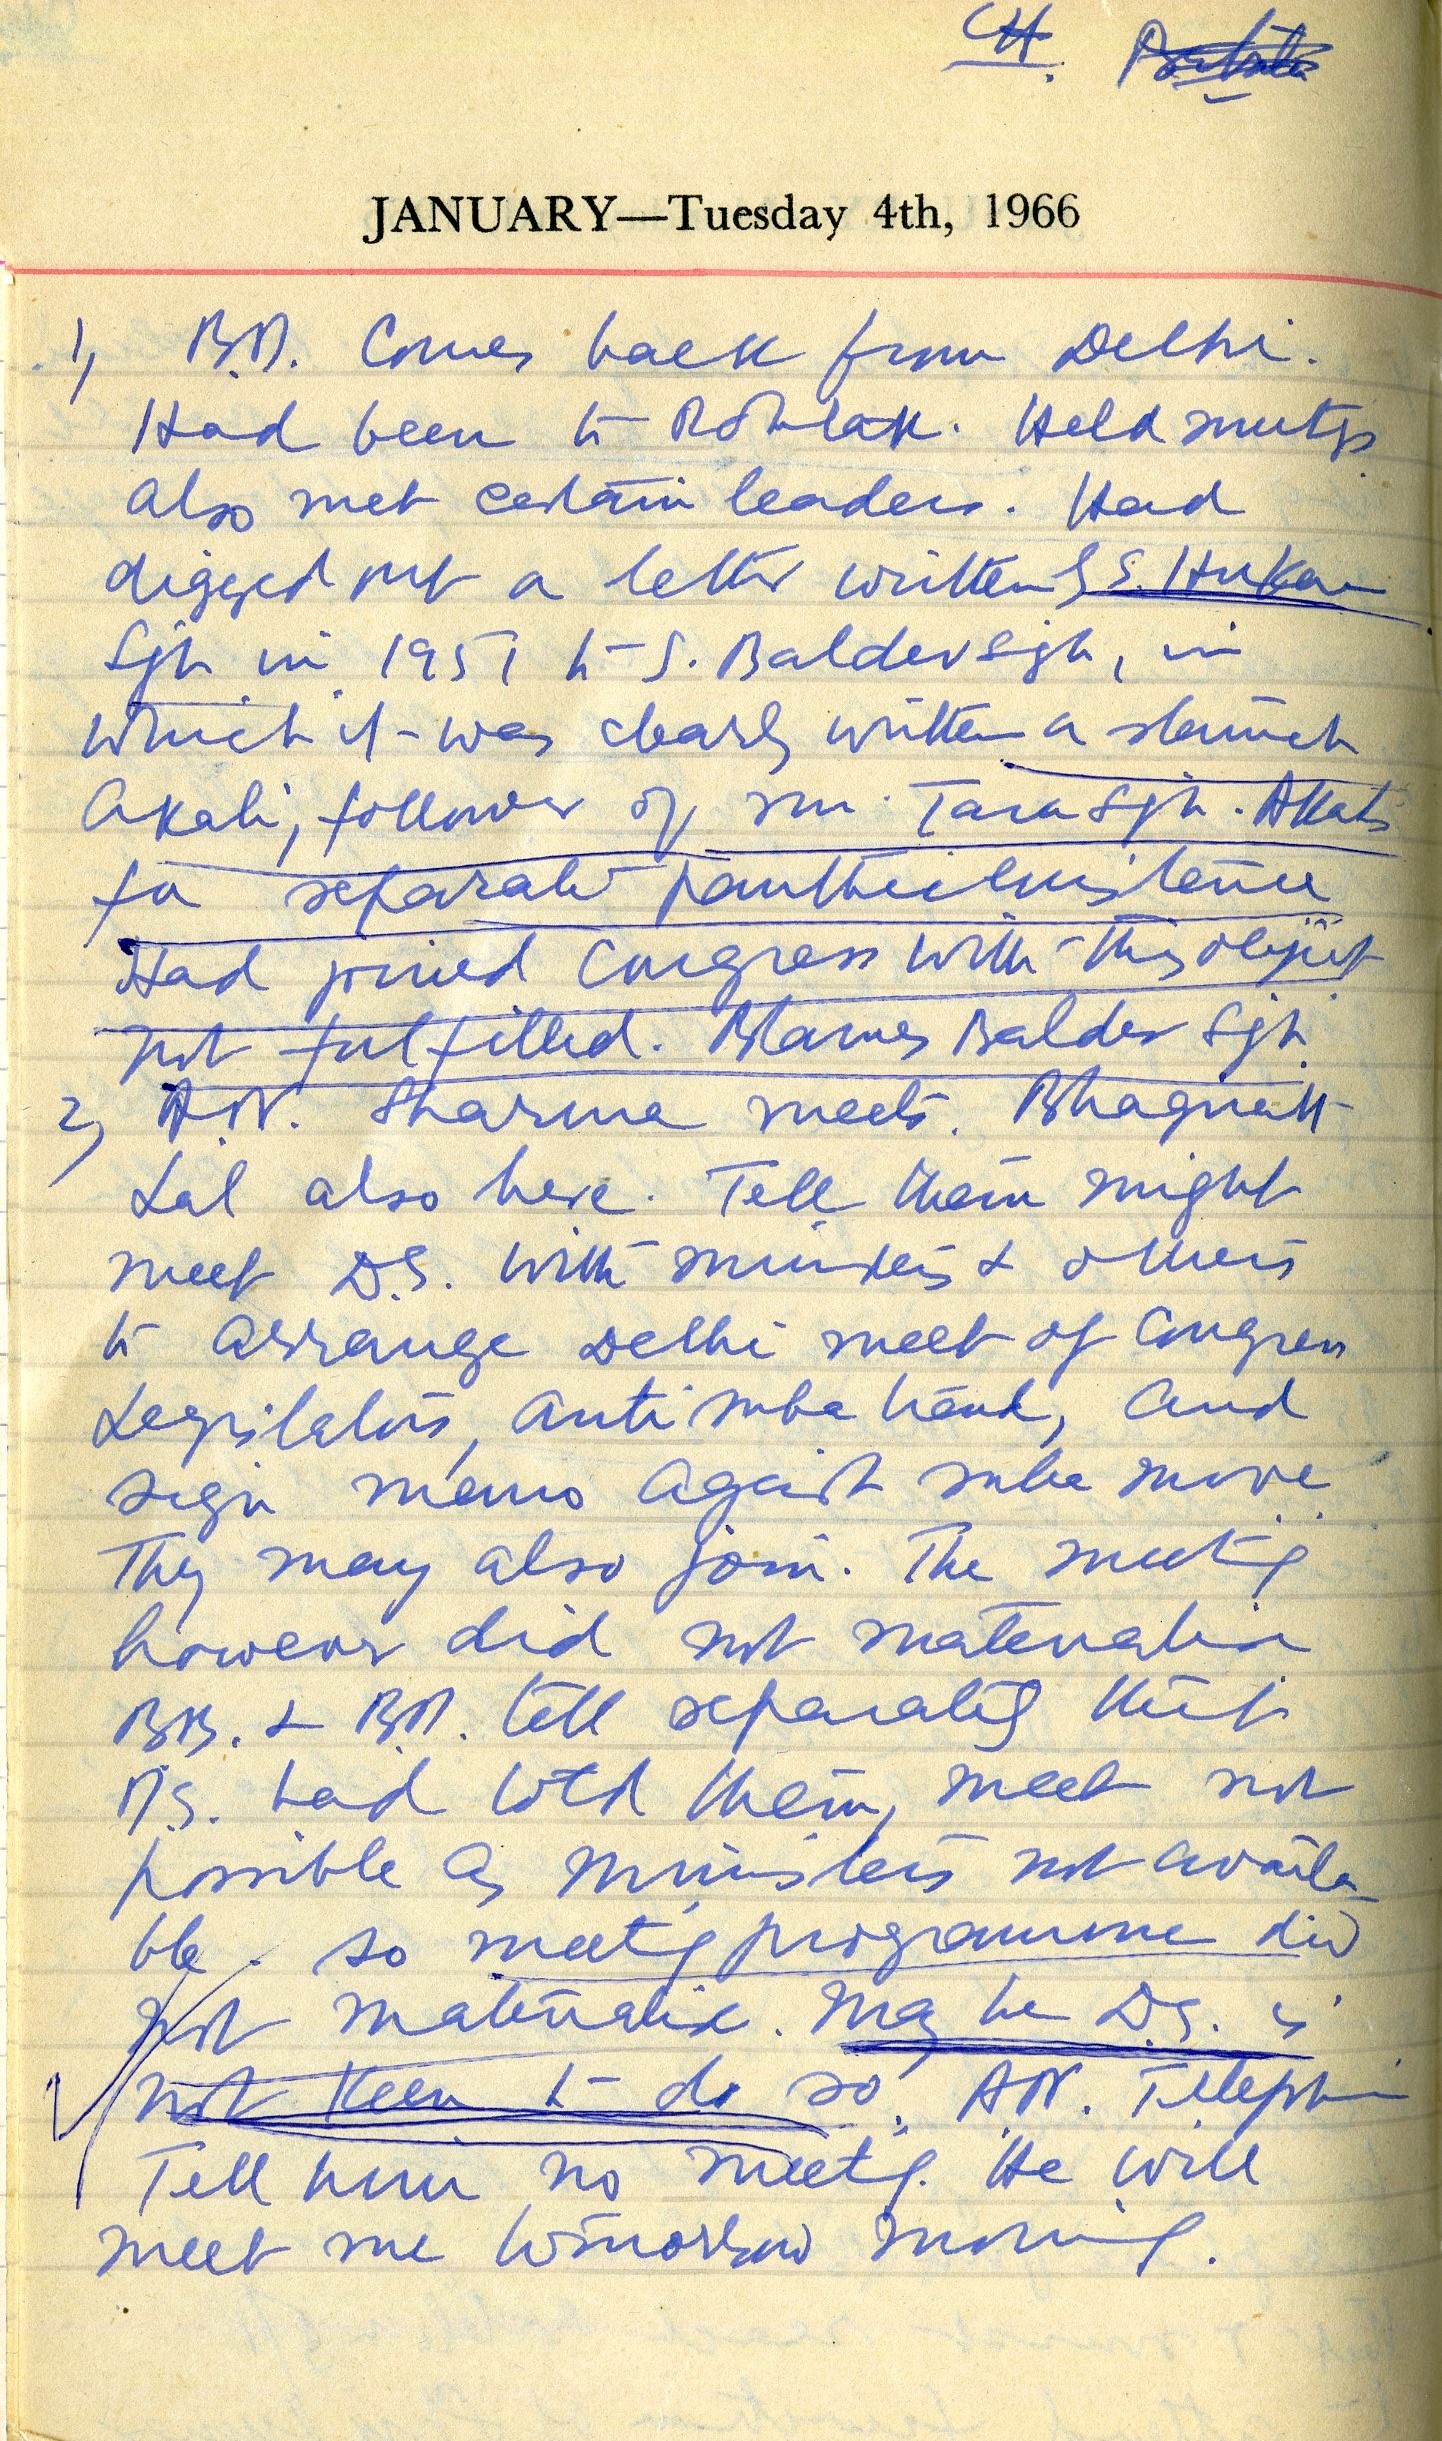 CH.
JANUARY—Tuesday 4th, 1966
1) B.D. Comes back from Delhi.
Had been to Rohtak. Held meetgs
also met certain leaders. Had
digged out a letter written by S. Hukam
Sgh in 1951 to S. Baldev Sgh, in
which it was clearly written a staunch
Akali, follower of Mr. Tara Sgh. Akalis
for separate panthic existence
Had joined Congress with this object
not fulfilled. Blames Baldev Sgh.
2) A.N. Sharma meets. Bhagwat
Lal also here. Tell them might
meet D.S. with ministers & others
to arrange Delhi meet of Congress
Legislators, anti suba head, and
sign memo against suba move.
They may also join. The meetig
however did not materialise
B.B. & B.D. tell separately that
D.S. had told them, meet not
possible as Ministers not availa-
ble. so meetg programme did
not materialise. May be D.S. is
not keen to do so. A.N. Telephone
Tell him no meetg. He will
meet me tomorrow morning.